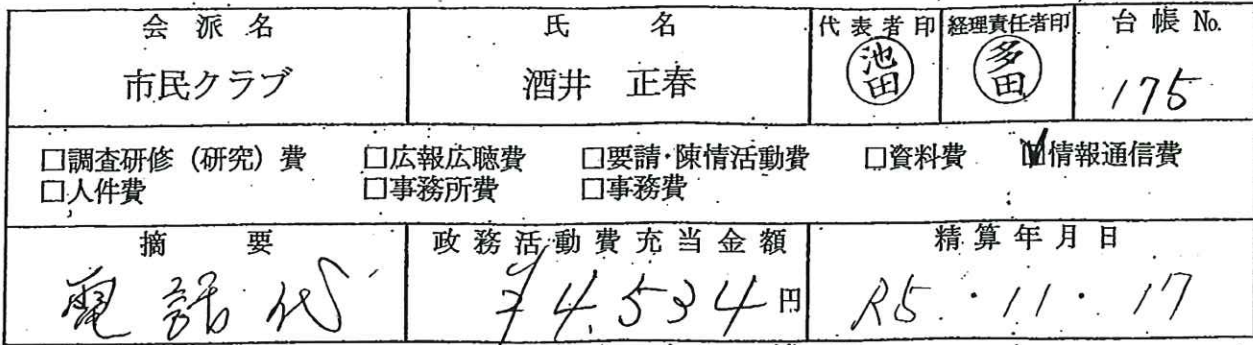 会派名 氏名 代表者印 経理責任者印 台帳No.
市民クラブ 酒井 正春 池田 多田 175
□調査研修（研究）費 □広報広聴費 □要請・陳情活動費 □資料費 ☑情報通信費
□人件費 □事務所費 □事務費
摘要 政務活動費充当金額 精算年月日
電話代 ¥4,534円 R5・11・17